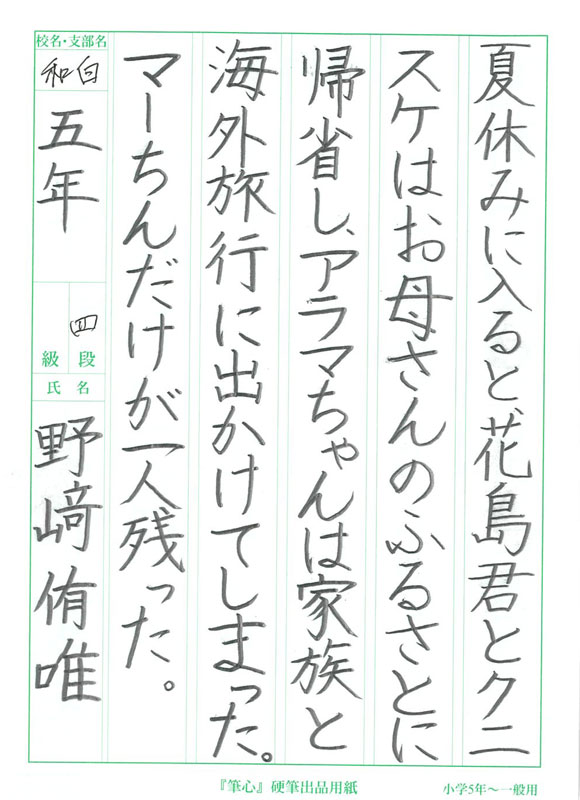 夏休みに入ると、花島君とクニ
スケはお母さんのふるさとに
帰省し、アラマちゃんは家族と
海外旅行に出かけてしまった。
マーちんだけが一人残った。
校名・支部名
和白
五年
四
級段
氏名
野﨑侑唯
『筆心』硬筆出品用紙
小学5年〜一般用